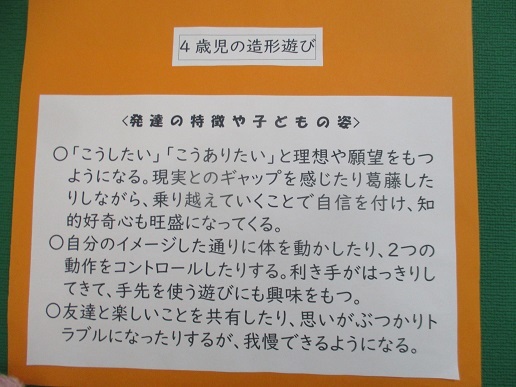 4歳児の造形遊び
〈発達の特徴や子どもの姿〉
○「こうしたい」「こうありたい」と理想や願望をもつ
ようになる。現実とのギャップを感じたり葛藤した
りしながら、乗り越えていくことで自信を付け、知
的好奇心も旺盛になってくる。
○自分のイメージした通りに体を動かしたり、2つの
動作をコントロールしたりする。利き手がはっきりし
てきて、手先を使う遊びにも興味をもつ。
○友達と楽しいことを共有したり、思いがぶつかりト
ラブルになったりするが、我慢できるようになる。